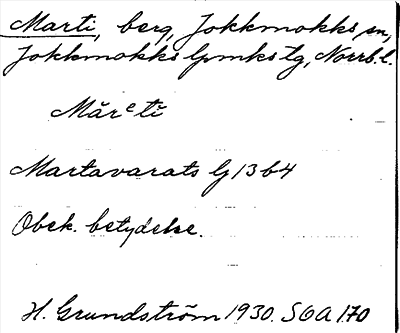 Marti, berg, Jokkmokks sn,
Jokkmokks lpmks tg, Norrb. l.
Mărᵉti
Martavarats G 13 b 4
Obek. betydelse.
H. Grundström 1930. SOA 170